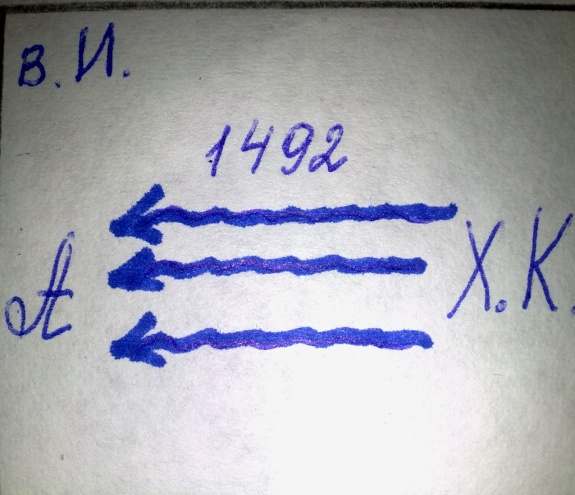 В. И.
1492
А Х. К.